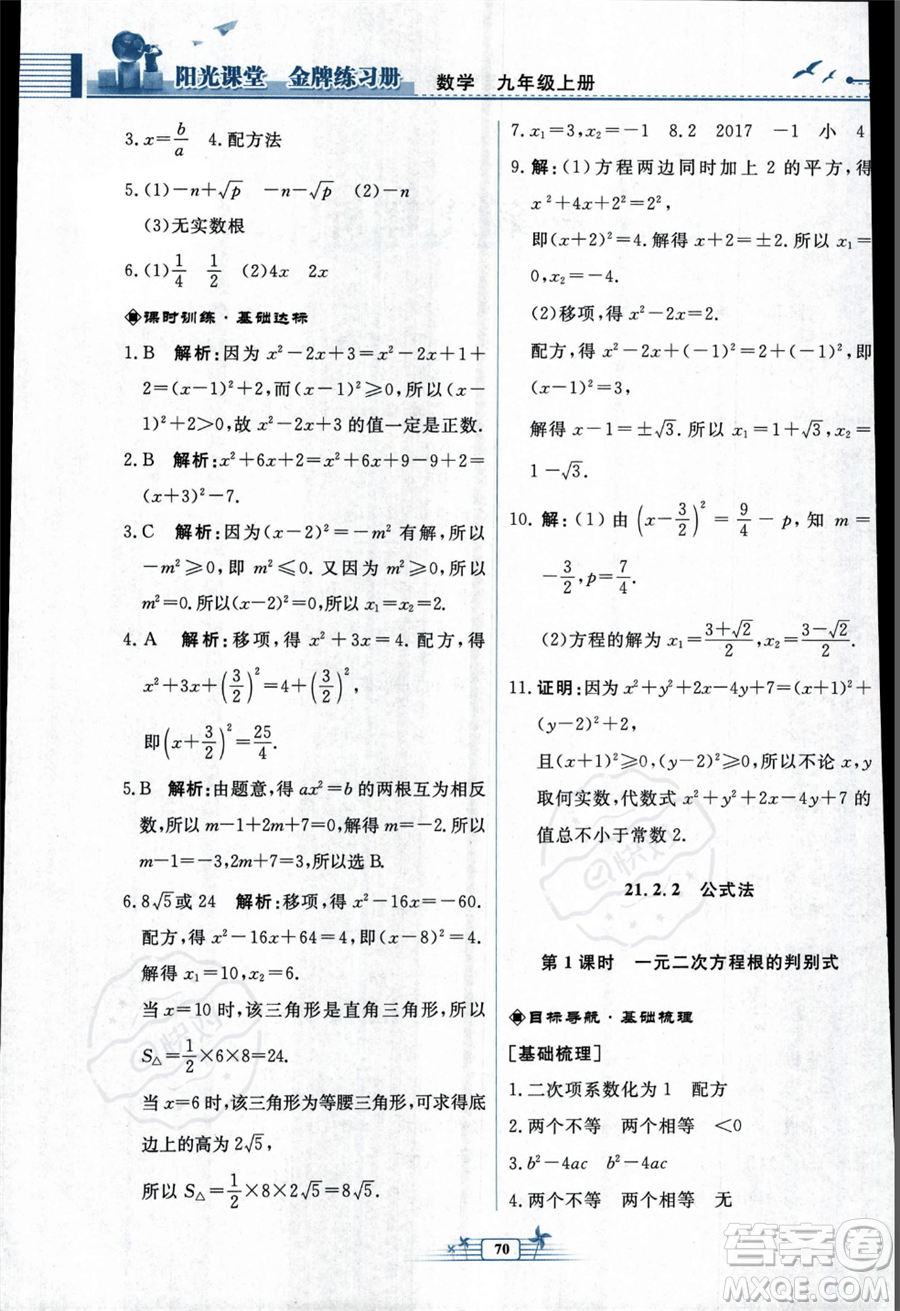 阳光课堂 金牌练习册 数学 九年级上册
3. x=b/a 4.配方法
5. (1)-n+√p -n-√p (2)-n
(3)无实数根
6. (1)1/4 1/2 (2)4x 2x
课时训练·基础达标
1. B 解析:因为 x²-2x+3=x²-2x+1+
2=(x-1)²+2,而(x-1)²≥0,所以(x-
1)²+2>0,故 x²-2x+3 的值一定是正数.
2. B 解析:x²+6x+2=x²+6x+9-9+2=
(x+3)²-7.
3. C 解析:因为(x-2)²=-m² 有解,所以
-m²≥0,即 m²≤0. 又因为 m²≥0,所以
m²=0.所以(x-2)²=0.所以 x₁=x₂=2.
4. A 解析:移项,得 x²+3x=4. 配方,得
x²+3x+(3/2)²=4+(3/2)²,
即(x+3/2)²=25/4.
5. B 解析:由题意,得 ax²=b 的两根互为相反
数,所以 m-1+2m+7=0,解得 m=-2.所以
m-1=-3,所以选 B.
6. 8√5或 24 解析:移项,得 x²-16x=-60.
配方,得 x²-16x+64=4,即(x-8)²=4.
解得 x₁=10,x₂=6.
当 x=10 时,该三角形是直角三角形,所以
S△=1/2×6×8=24.
当 x=6 时,该三角形为等腰三角形,可求得底
边上的高为 2√5,
所以 S△=1/2×8×2√5=8√5.
7. x₁=3,x₂=-1 8.2 2017 -1 小 4
9. 解:(1)方程两边同时加上 2 的平方,得
x²+4x+2²=2²,
即(x+2)²=4. 解得 x+2=±2. 所以 x₁=
0,x₂=-4.
(2)移项,得 x²-2x=2.
配方,得 x²-2x+1²=2+1²,即
(x-1)²=3,
解得 x-1=±√3. 所以 x₁=1+√3,x₂=
1-√3.
10. 解:(1)由(x-3/2)²=9/4-p,知 m=
-3/2,p=7/4.
(2)方程的解为 x₁=(3+√2)/2,x₂=(3-√2)/2.
11. 证明:因为 x²+y²+2x-4y+7=(x+1)²+
(y-2)²+2,
且(x+1)²≥0,(y-2)²≥0,所以不论 x,y
取何实数,代数式 x²+y²+2x-4y+7 的
值总不小于常数 2.
21.2.2 公式法
第 1 课时 一元二次方程根的判别式
目标导航·基础梳理
[基础梳理]
1. 二次项系数化为 1 配方
2. 两个不等 两个相等 <0
3. b²-4ac b²-4ac
4. 两个不等 两个相等 无
70
答案圈
MXQE.COM